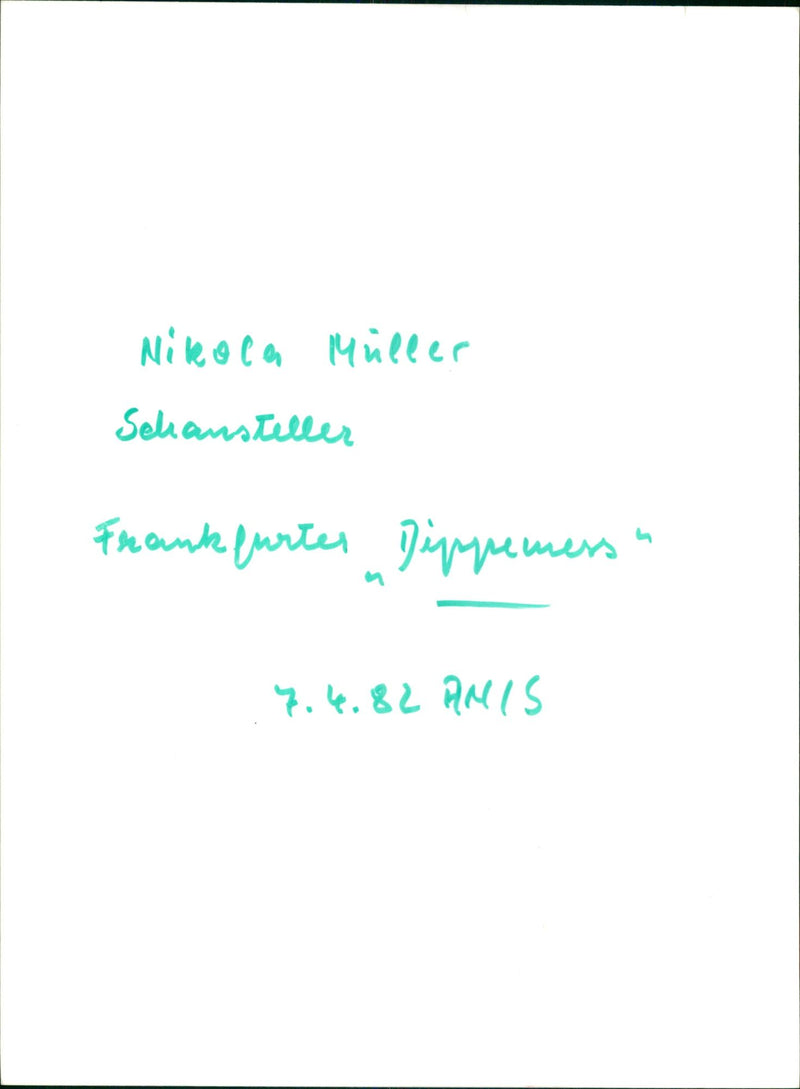 Nikola Müller
Schausteller
Frankfurter „Dippemess“
7.4.82 AMIS